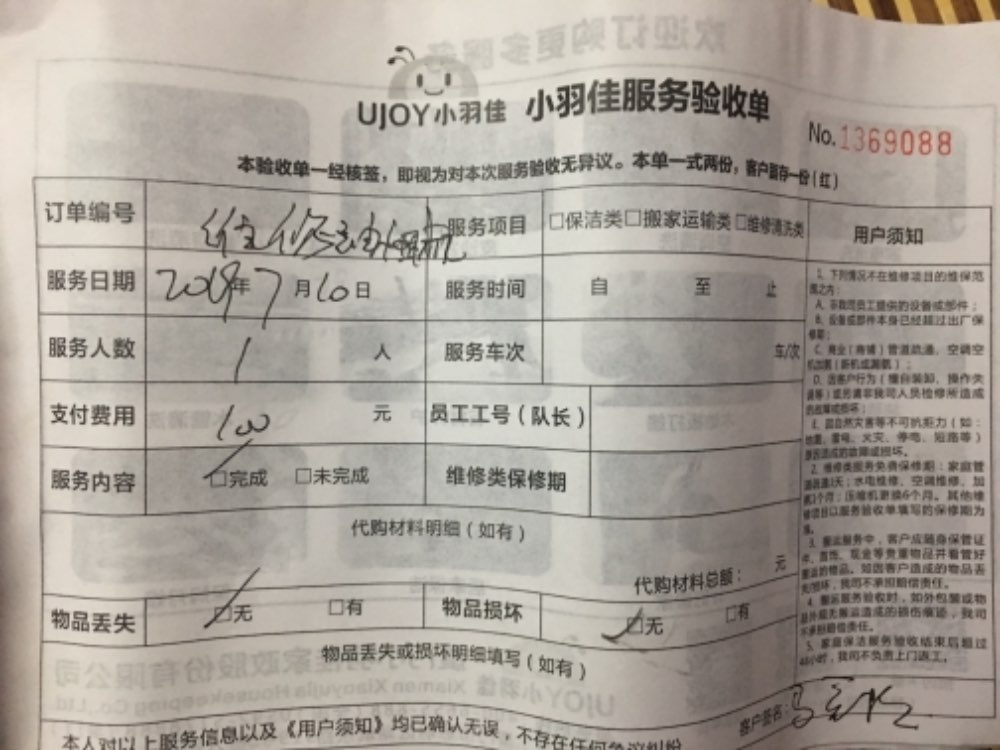 UJOY小羽佳 小羽佳服务验收单
No.1369088
本验收单一经核签，即视为对本次服务验收无异议。本单一式两份，客户留存一份（红）
订单编号 服务项目 □保洁类□搬家运输类□维修清洗类 用户须知
服务日期 2019年7月10日 服务时间 自 至 止
服务人数 1 人 服务车次 车/次
支付费用 100 元 员工工号（队长）
服务内容 □完成 □未完成 维修类保修期
代购材料明细（如有）
代购材料总额： 元
物品丢失 □无 □有 物品损坏 □无 □有
物品丢失或损坏明细填写（如有）
本人对以上服务信息以及《用户须知》均已确认无误，不存在任何争议纠纷
客户签名：
1、下列情况不在维修项目的维保范
围之内：
A、非我司员工提供的设备或部件；
B、设备或部件本身已经超过出厂保
修期；
C、商业（商铺）管道疏通，空调空
D、因客户行为（擅自装卸、操作失
误等）或另请非我司人员检修所造成
的故障或损坏；
E、因自然灾害等不可抗拒力（如：
地震、雷电、火灾、停电、短路等）
原因造成的故障或损坏。
2、维修类服务免费保修期：家庭管
水电维修、空调维修、加
压缩机更换6个月。其他维
修项目以服务验收单填写的保修期为
准。
3、搬运服务中，客户应随身保管证
件、首饰、现金等贵重物品并看管好
搬运的物品。如因客户造成的物品丢
失损坏，我司不承担赔偿责任。
4、搬运服务验收时，如外包装或物
品外观无搬运造成的损伤痕迹，我司
不承担赔偿责任。
5、家庭保洁服务验收结束后超过
48小时，我司不负责上门返工。